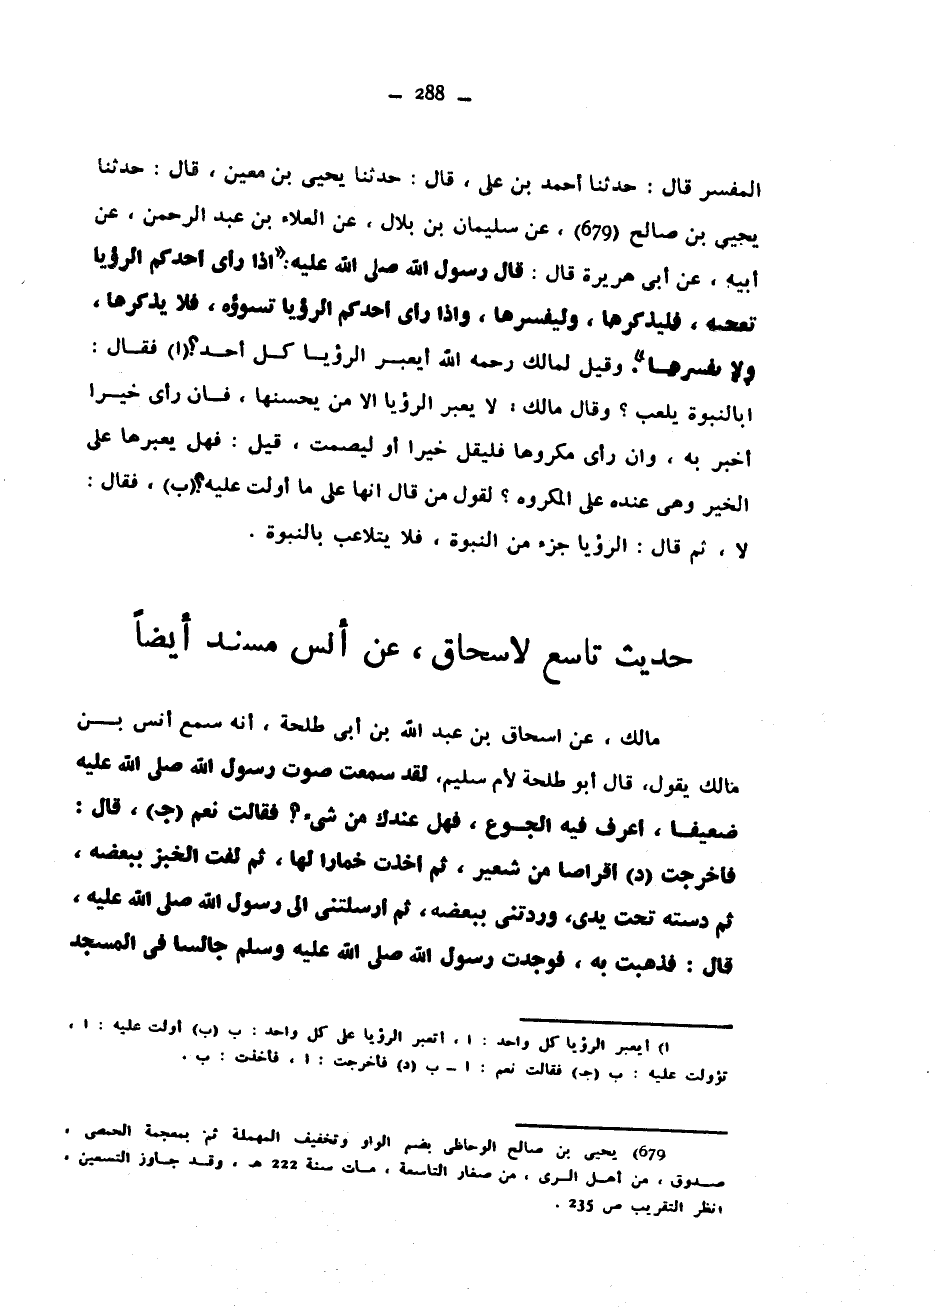 – 288 –
المفسر قال : حدثنا أحمد بن على ، قال : حدثنا يحيى بن معين ، قال : حدثنا
يحيى بن صالح (679) ، عن سليمان بن بلال ، عن العلاء بن عبد الرحمن ، عن
أبيه ، عن أبى هريرة قال : قال رسول الله صلى الله عليه: «اذا رأى أحدكم الرؤيا
تعجبه ، فليذكرها ، وليفسرها ، واذا رأى أحدكم الرؤيا تسوؤه ، فلا يذكرها ،
ولا يفسرهـا». وقيل لمالك رحمه الله أيعبـر الرؤيـا كـل أحـد؟(ا) فقـال :
ابالنبوة يلعب ؟ وقال مالك : لا يعبر الرؤيا الا من يحسنها ، فـان رأى خيـرا
أخبر به ، وان رأى مكروها فليقل خيرا أو ليصمت ، قيل : فهل يعبرها على
الخير وهى عنده على المكروه ؟ لقول من قال انها على ما أولت عليه؟(ب) ، فقال :
لا ، ثم قال : الرؤيا جزء من النبوة ، فلا يتلاعب بالنبوة .
حديث تاسع لاسحاق ، عن أنس مسند أيضاً
مالك ، عن اسحاق بن عبد الله بن أبى طلحة ، أنه سمع أنس بـــن
مالك يقول، قال أبو طلحة لأم سليم، لقد سمعت صوت رسول الله صلى الله عليه
ضعيفـا ، أعرف فيه الجـوع ، فهل عندك من شىء؟ فقالت نعم (جـ) ، قال :
فأخرجت (د) أقراصا من شعير ، ثم أخذت خمارا لها ، ثم لفت الخبز ببعضه ،
ثم دسته تحت يدى، وردتنى ببعضه، ثم أرسلتنى الى رسول الله صلى الله عليه ،
قال : فذهبت به ، فوجدت رسول الله صلى الله عليه وسلم جالسا فى المسجد
ا) أيعبر الرؤيا كل واحد : ا ، أتعبر الرؤيا على كل واحد : ب (ب) أولت عليه : ا ،
تؤولت عليه : ب (جـ) فقالت نعم : ا – ب (د) فأخرجت : ا ، فأخذت : ب .
679) يحيى بن صالح الوحاظى بضم الواو وتخفيف المهملة ثم بمعجمة الحمصى ،
صـدوق ، من أهـل الـرى ، من صغار التاسعة ، مـات سنة 222 هـ ، وقـد جـاوز التسعين ،
انظر التقريب ص 235 .